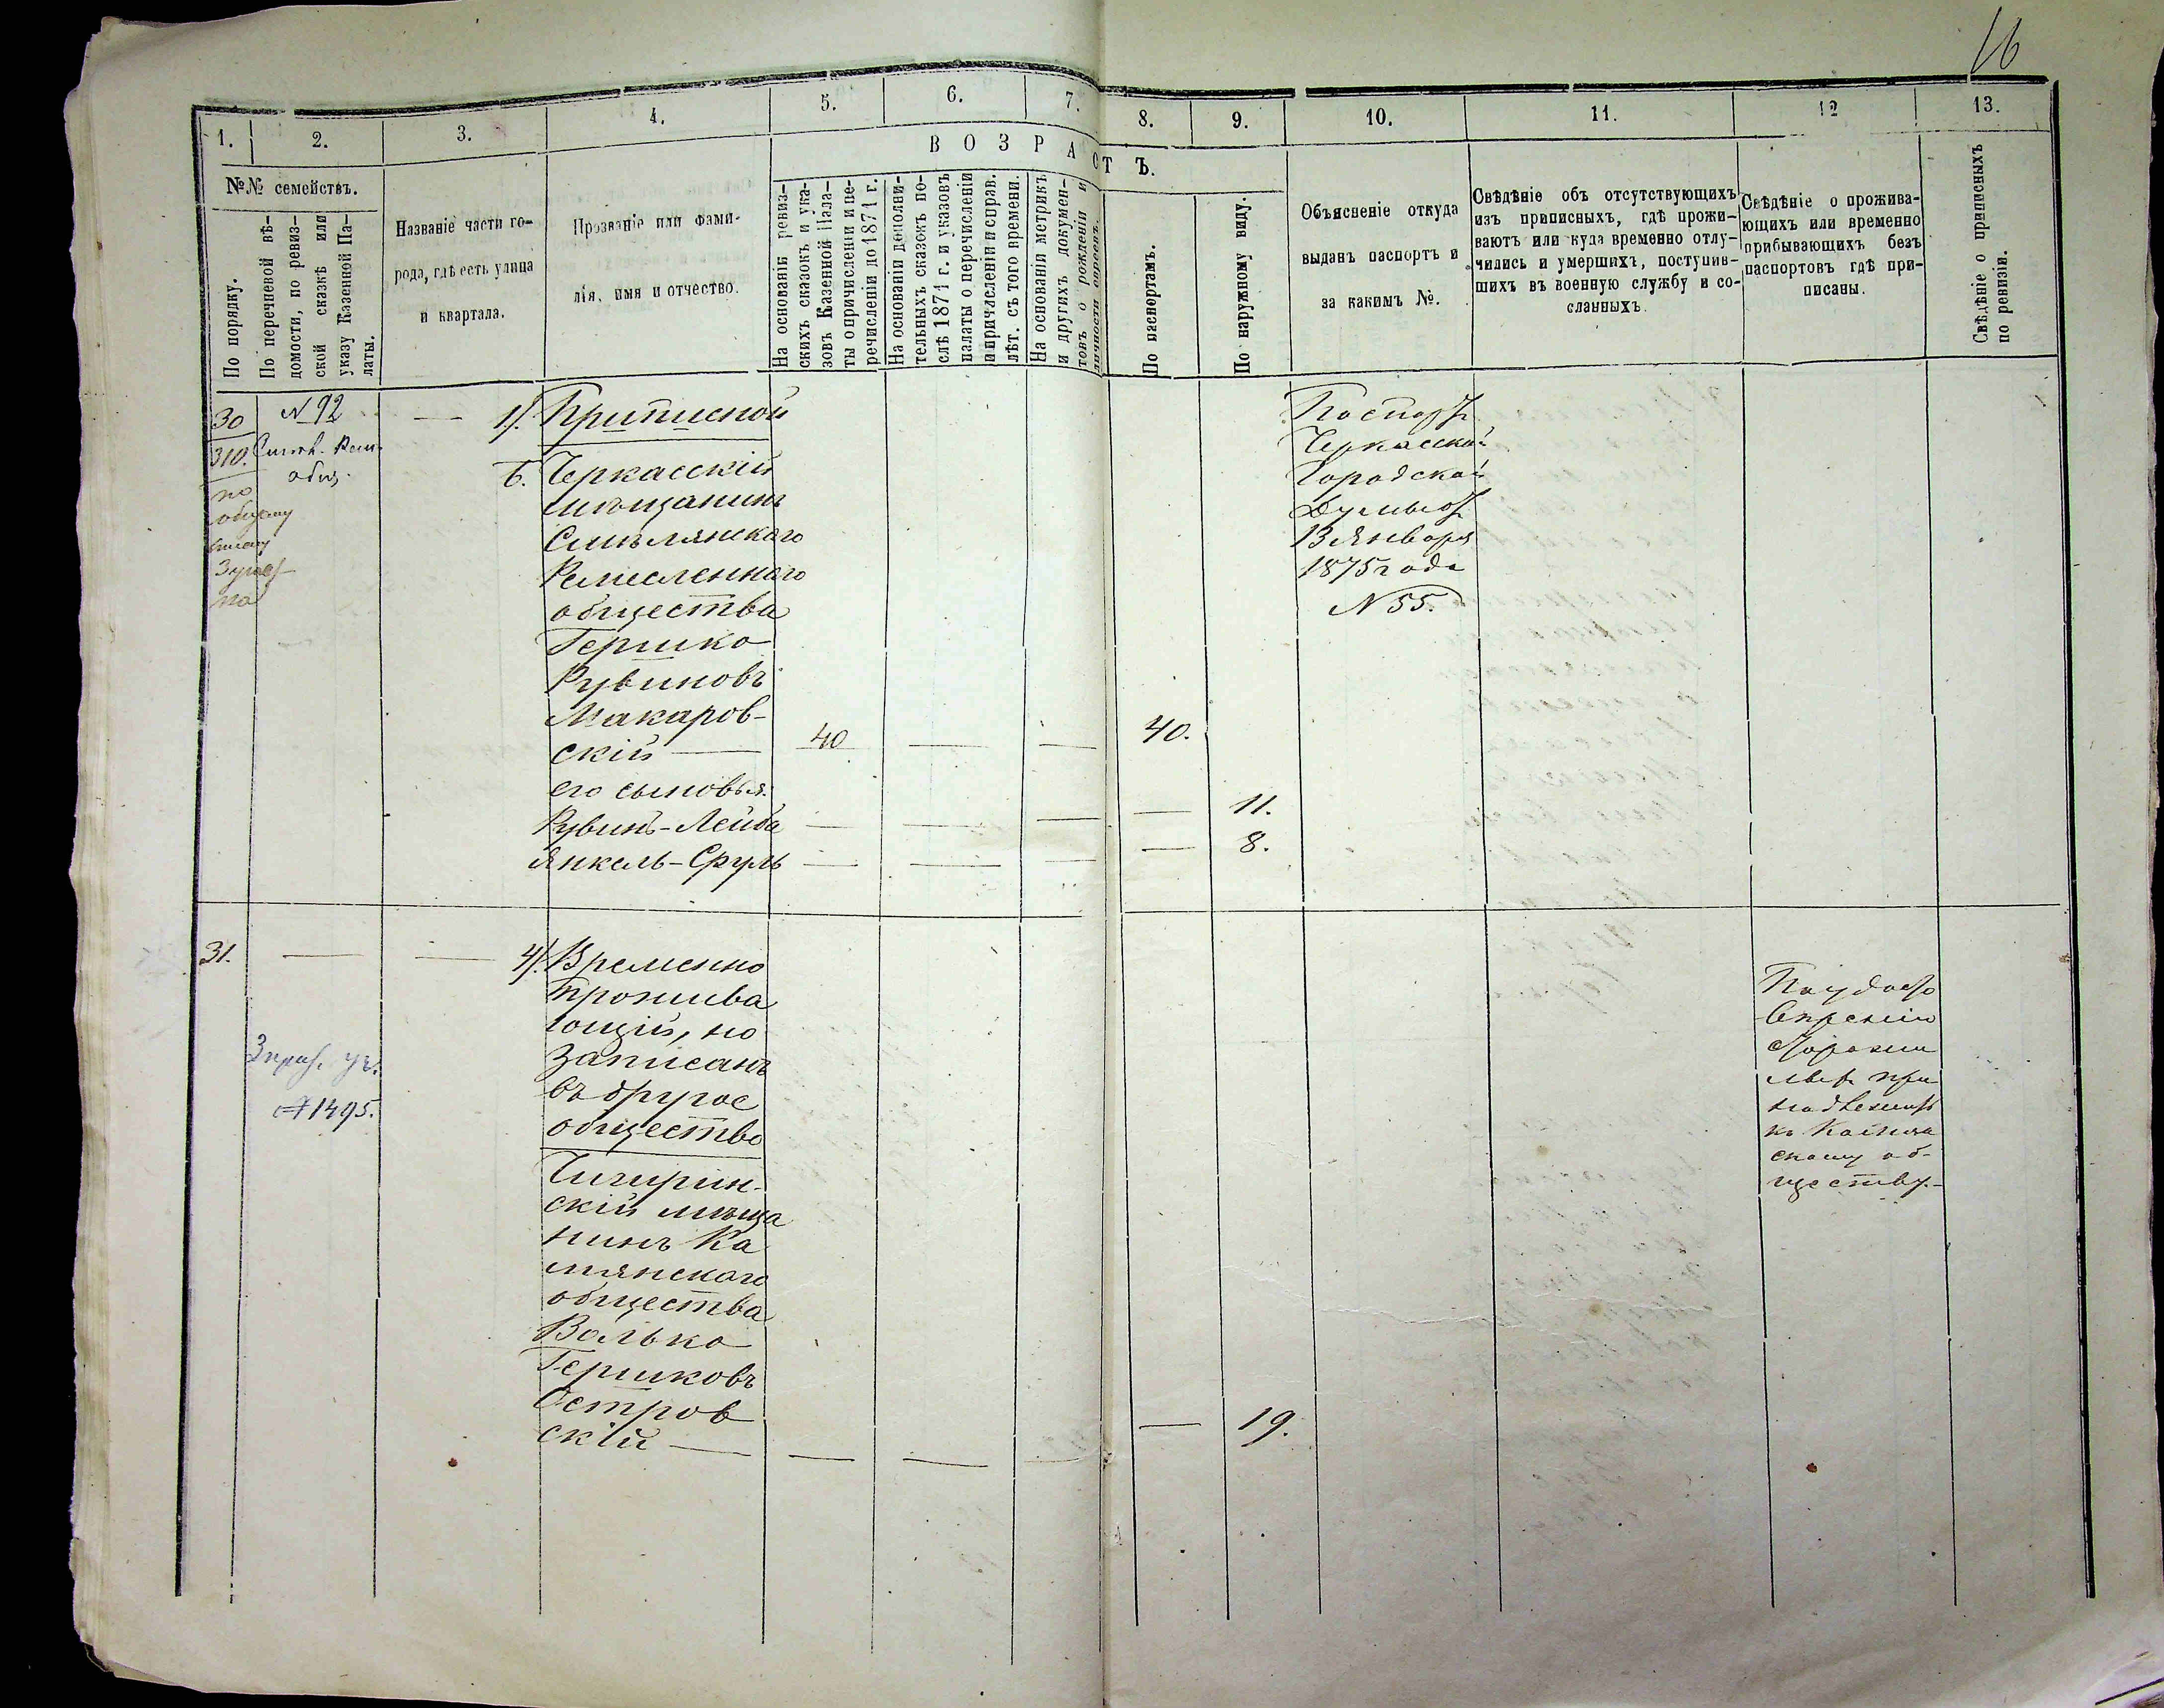 16
1.
2.
3.
4.
5.
6.
7.
8.
9.
10.
11.
12
13.
В О З Р А С Т Ъ.
№№ семействъ.
По порядку.
По перечневой вѣ-
домости, по ревиз-
ской сказкѣ или
указу Казенной Па-
латы.
Названіе части го-
рода, гдѣ есть улица
и квартала.
Прозваніе или фами-
лія, имя и отчество.
На основаніи ревиз-
скихъ сказокъ и ука-
зовъ Казенной Пала-
ты о причисленіи и пе-
речисленіи до 1871 г.
На основаніи дополни-
тельныхъ сказокъ по-
слѣ 1871 г. и указовъ
палаты о перечисленіи
и причисленіи и справ.
лѣт. съ того времени.
На основаніи метрикъ
и другихъ докумен-
товъ о рожденіи и
личности евреевъ.
По паспортамъ.
По наружному виду.
Объясненіе откуда
выданъ паспортъ и
за какимъ №.
Свѣдѣніе объ отсутствующихъ
изъ приписныхъ, гдѣ прожи-
ваютъ или куда временно отлу-
чились и умершихъ, поступив-
шихъ въ военную службу и со-
сланныхъ.
Свѣдѣніе о прожива-
ющихъ или временно
прибывающихъ безъ
паспортовъ гдѣ при-
писаны.
Свѣдѣніе о приписныхъ
по ревизіи.
30
310.
по
общему
N 92
Смѣл. Рем.
общ.
1). Приписной
Б. Черкасскій
мѣщанинъ
Смѣлянскаго
Ремесленнаго
общества
Гершко
Рувиновъ
Макаров-
скій — 40 — — 40.
его сыновья:
Рувинъ-Лейба — — — — 11.
Янкель-Сруль — — — — 8.
Паспортъ
Черкасской
Городской
Думы отъ
13 Января
1875 года
N 55.
31. — —
4). Временно
прожива
ющій, но
записанъ
въ другое
общество
Чигирин-
скій мѣща
нинъ Ка
мянскаго
общества
Волько
Гершковъ
Остров
скій — — — — — 19.
№ 1495.
По удосто
вѣренію
при
надлежитъ
къ Камян
скому об-
ществу.-